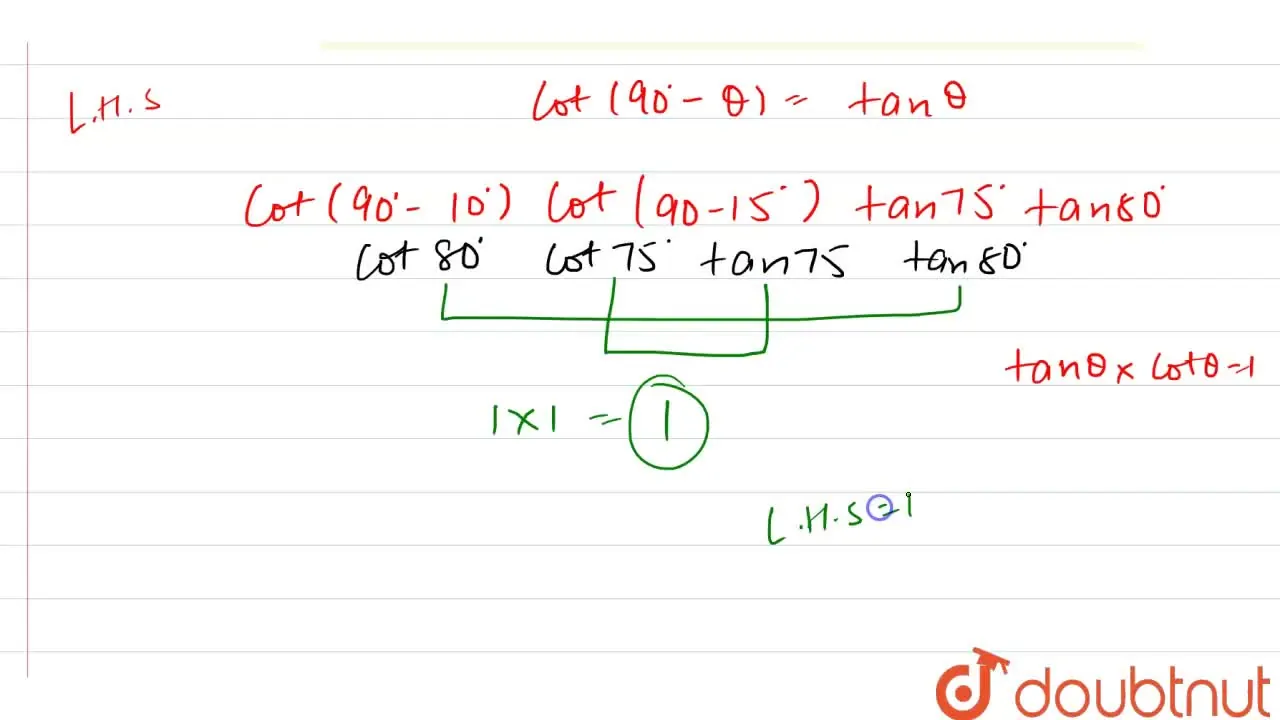 L.H.S
cot(90° - θ) = tanθ
cot(90° - 10°) cot(90-15°) tan75° tan80°
cot 80° cot 75° tan75 tan80°
tanθ × cotθ=1
1×1 = 1
L.H.S=1
doubtnut